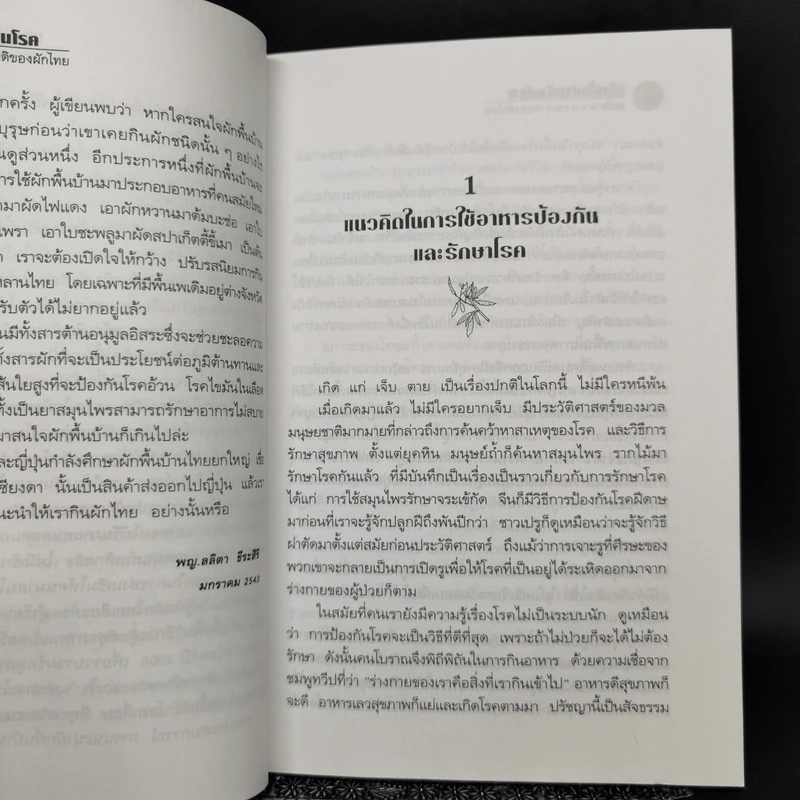 นโรค
ติของผักไทย
กครั้ง ผู้เขียนพบว่า หากใครสนใจผักพื้นบ้าน
บุรุษก่อนว่าเขาเคยกินผักชนิดนั้น ๆ อย่างไร
นดูส่วนหนึ่ง อีกประการหนึ่งที่ผักพื้นบ้านจะ
การใช้ผักพื้นบ้านมาประกอบอาหารที่คนสมัยใหม่
ามาผัดไฟแดง เอาผักหวานมาต้มบะช่อ เอาใบ
เพรา เอาใบชะพลูมาผัดสปาเก็ตตี้ขี้เมา เป็นต้น
เราจะต้องเปิดใจให้กว้าง ปรับรสนิยมการกิน
หลานไทย โดยเฉพาะที่มีพื้นเพเดิมอยู่ต่างจังหวัด
รับตัวได้ไม่ยากอยู่แล้ว
นมีทั้งสารต้านอนุมูลอิสระซึ่งจะช่วยชะลอความ
ทั้งสารผักที่จะเป็นประโยชน์ต่อภูมิต้านทานและ
ส้นใยสูงที่จะป้องกันโรคอ้วน โรคไขมันในเลือด
ทั้งเป็นยาสมุนไพรสามารถรักษาอาการไม่สบาย
มาสนใจผักพื้นบ้านก็เกินไปล่ะ
ละญี่ปุ่นกำลังศึกษาผักพื้นบ้านไทยยกใหญ่ เชื่อ
เซียงดา นั้นเป็นสินค้าส่งออกไปญี่ปุ่น แล้วเรา
นะนำให้เรากินผักไทย อย่างนั้นหรือ
พญ.ลลิตา ธีระสิริ
มกราคม 2543
1
แนวคิดในการใช้อาหารป้องกัน
และรักษาโรค
เกิด แก่ เจ็บ ตาย เป็นเรื่องปกติในโลกนี้ ไม่มีใครหนีพ้น
เมื่อเกิดมาแล้ว ไม่มีใครอยากเจ็บ มีประวัติศาสตร์ของมวล
มนุษยชาติมากมายที่กล่าวถึงการค้นคว้าหาสาเหตุของโรค และวิธีการ
รักษาสุขภาพ ตั้งแต่ยุคหิน มนุษย์ถ้ำก็ค้นหาสมุนไพร รากไม้มา
รักษาโรคกันแล้ว ที่มีบันทึกเป็นเรื่องเป็นราวเกี่ยวกับการรักษาโรค
ได้แก่ การใช้สมุนไพรรักษาจระเข้กัด จีนก็มีวิธีการป้องกันโรคฝีดาษ
มาก่อนที่เราจะรู้จักปลูกฝีถึงพันปีกว่า ชาวเปรูก็ดูเหมือนว่าจะรู้จักวิธี
ผ่าตัดมาตั้งแต่สมัยก่อนประวัติศาสตร์ ถึงแม้ว่าการเจาะรูที่ศีรษะของ
พวกเขาจะกลายเป็นการเปิดรูเพื่อให้โรคที่เป็นอยู่ได้ระเหิดออกมาจาก
ร่างกายของผู้ป่วยก็ตาม
ในสมัยที่คนเรายังมีความรู้เรื่องโรคไม่เป็นระบบนัก ดูเหมือน
ว่า การป้องกันโรคจะเป็นวิธีที่ดีที่สุด เพราะถ้าไม่ป่วยก็จะได้ไม่ต้อง
รักษา ดังนั้นคนโบราณจึงพิถีพิถันในการกินอาหาร ด้วยความเชื่อจาก
ชมพูทวีปที่ว่า "ร่างกายของเราคือสิ่งที่เรากินเข้าไป" อาหารดีสุขภาพก็
จะดี อาหารเลวสุขภาพก็แย่และเกิดโรคตามมา ปรัชญานี้เป็นสัจธรรม